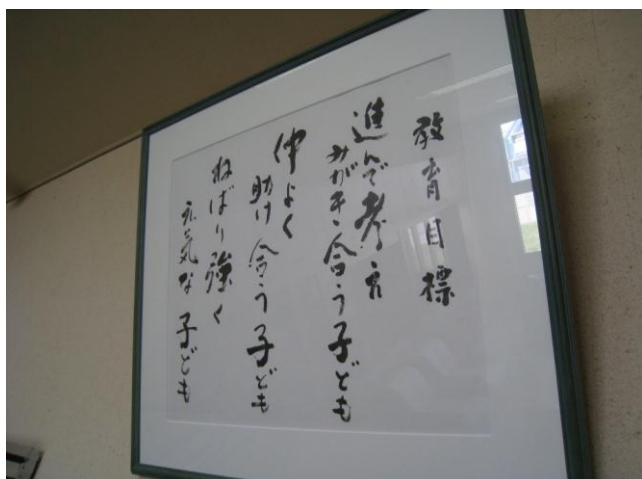 教育目標
進んで考え
みがき合う子ども
仲よく
助け合う子ども
ねばり強く
元気な子ども